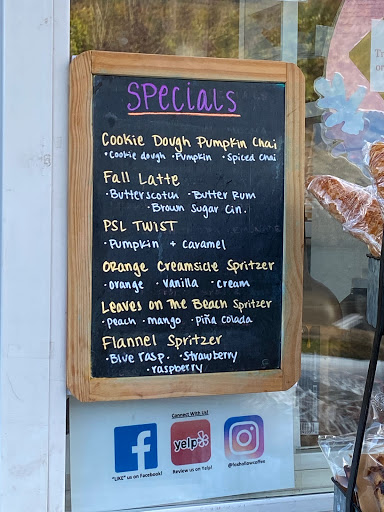 SPECIALS
Cookie Dough Pumpkin Chai
• Cookie dough • Pumpkin • Spiced Chai
Fall Latte
• Butterscotch • Butter Rum
• Brown Sugar Cin.
PSL TWIST
• Pumpkin + Caramel
Orange Creamsicle Spritzer
• orange • vanilla • cream
Leaves on The Beach Spritzer
• peach • mango • piña colada
Flannel Spritzer
• Blue rasp. • strawberry
• raspberry
Connect With Us!
f
yelp
"LIKE" us on Facebook!
Review us on Yelp!
@foxhollowcoffee